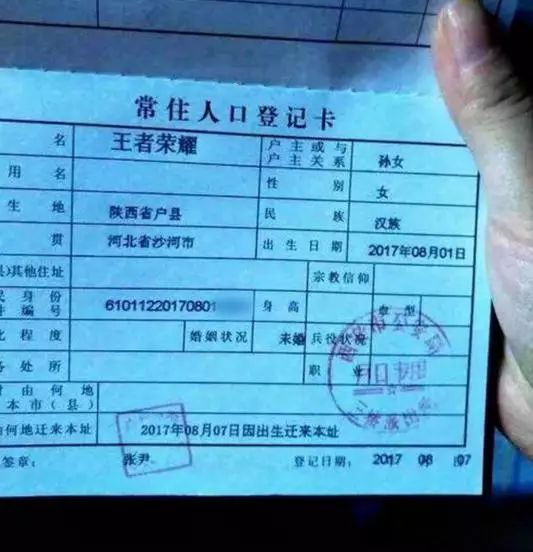 常住人口登记卡
名 王者荣耀 户主或与户主关系 孙女
用名 性别 女
生地 陕西省户县 民族 汉族
贯 河北省沙河市 出生日期 2017年08月01日
县)其他住址 宗教信仰
民身份件编号 61011220170801 身高 血型
化程度 婚姻状况 未婚 兵役状况
务处所 职业
由何地本市(县)
由何地迁来本址 2017年08月07日因出生迁来本址
签章: 张尹 登记日期: 2017 08 07
户口专用